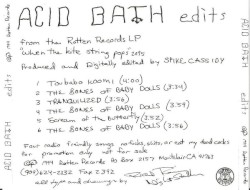 ACID BATH edits
from the Rotten Records LP
"When the kite string pops"
Produced and Digitally edited by SPIKE CASSIDY
1 Toubabo Koomi (4:00)
2 THE BONES OF BABY DOLLS (3:34)
3 TRANQUILIZED (3:56)
4 THE BONES OF BABY DOLLS (3:34)
5 Scream of the butterfly (3:52)
6 THE BONES OF BABY DOLLS (3:56)
Four radio friendly songs
for promotion only not for sale
1994 Rotten Records PO Box 2157 Montclair CA 91763
(909) 624-2332 Fax 2392
all art and drawings by
ACID BATH edits
ACID BATH edits